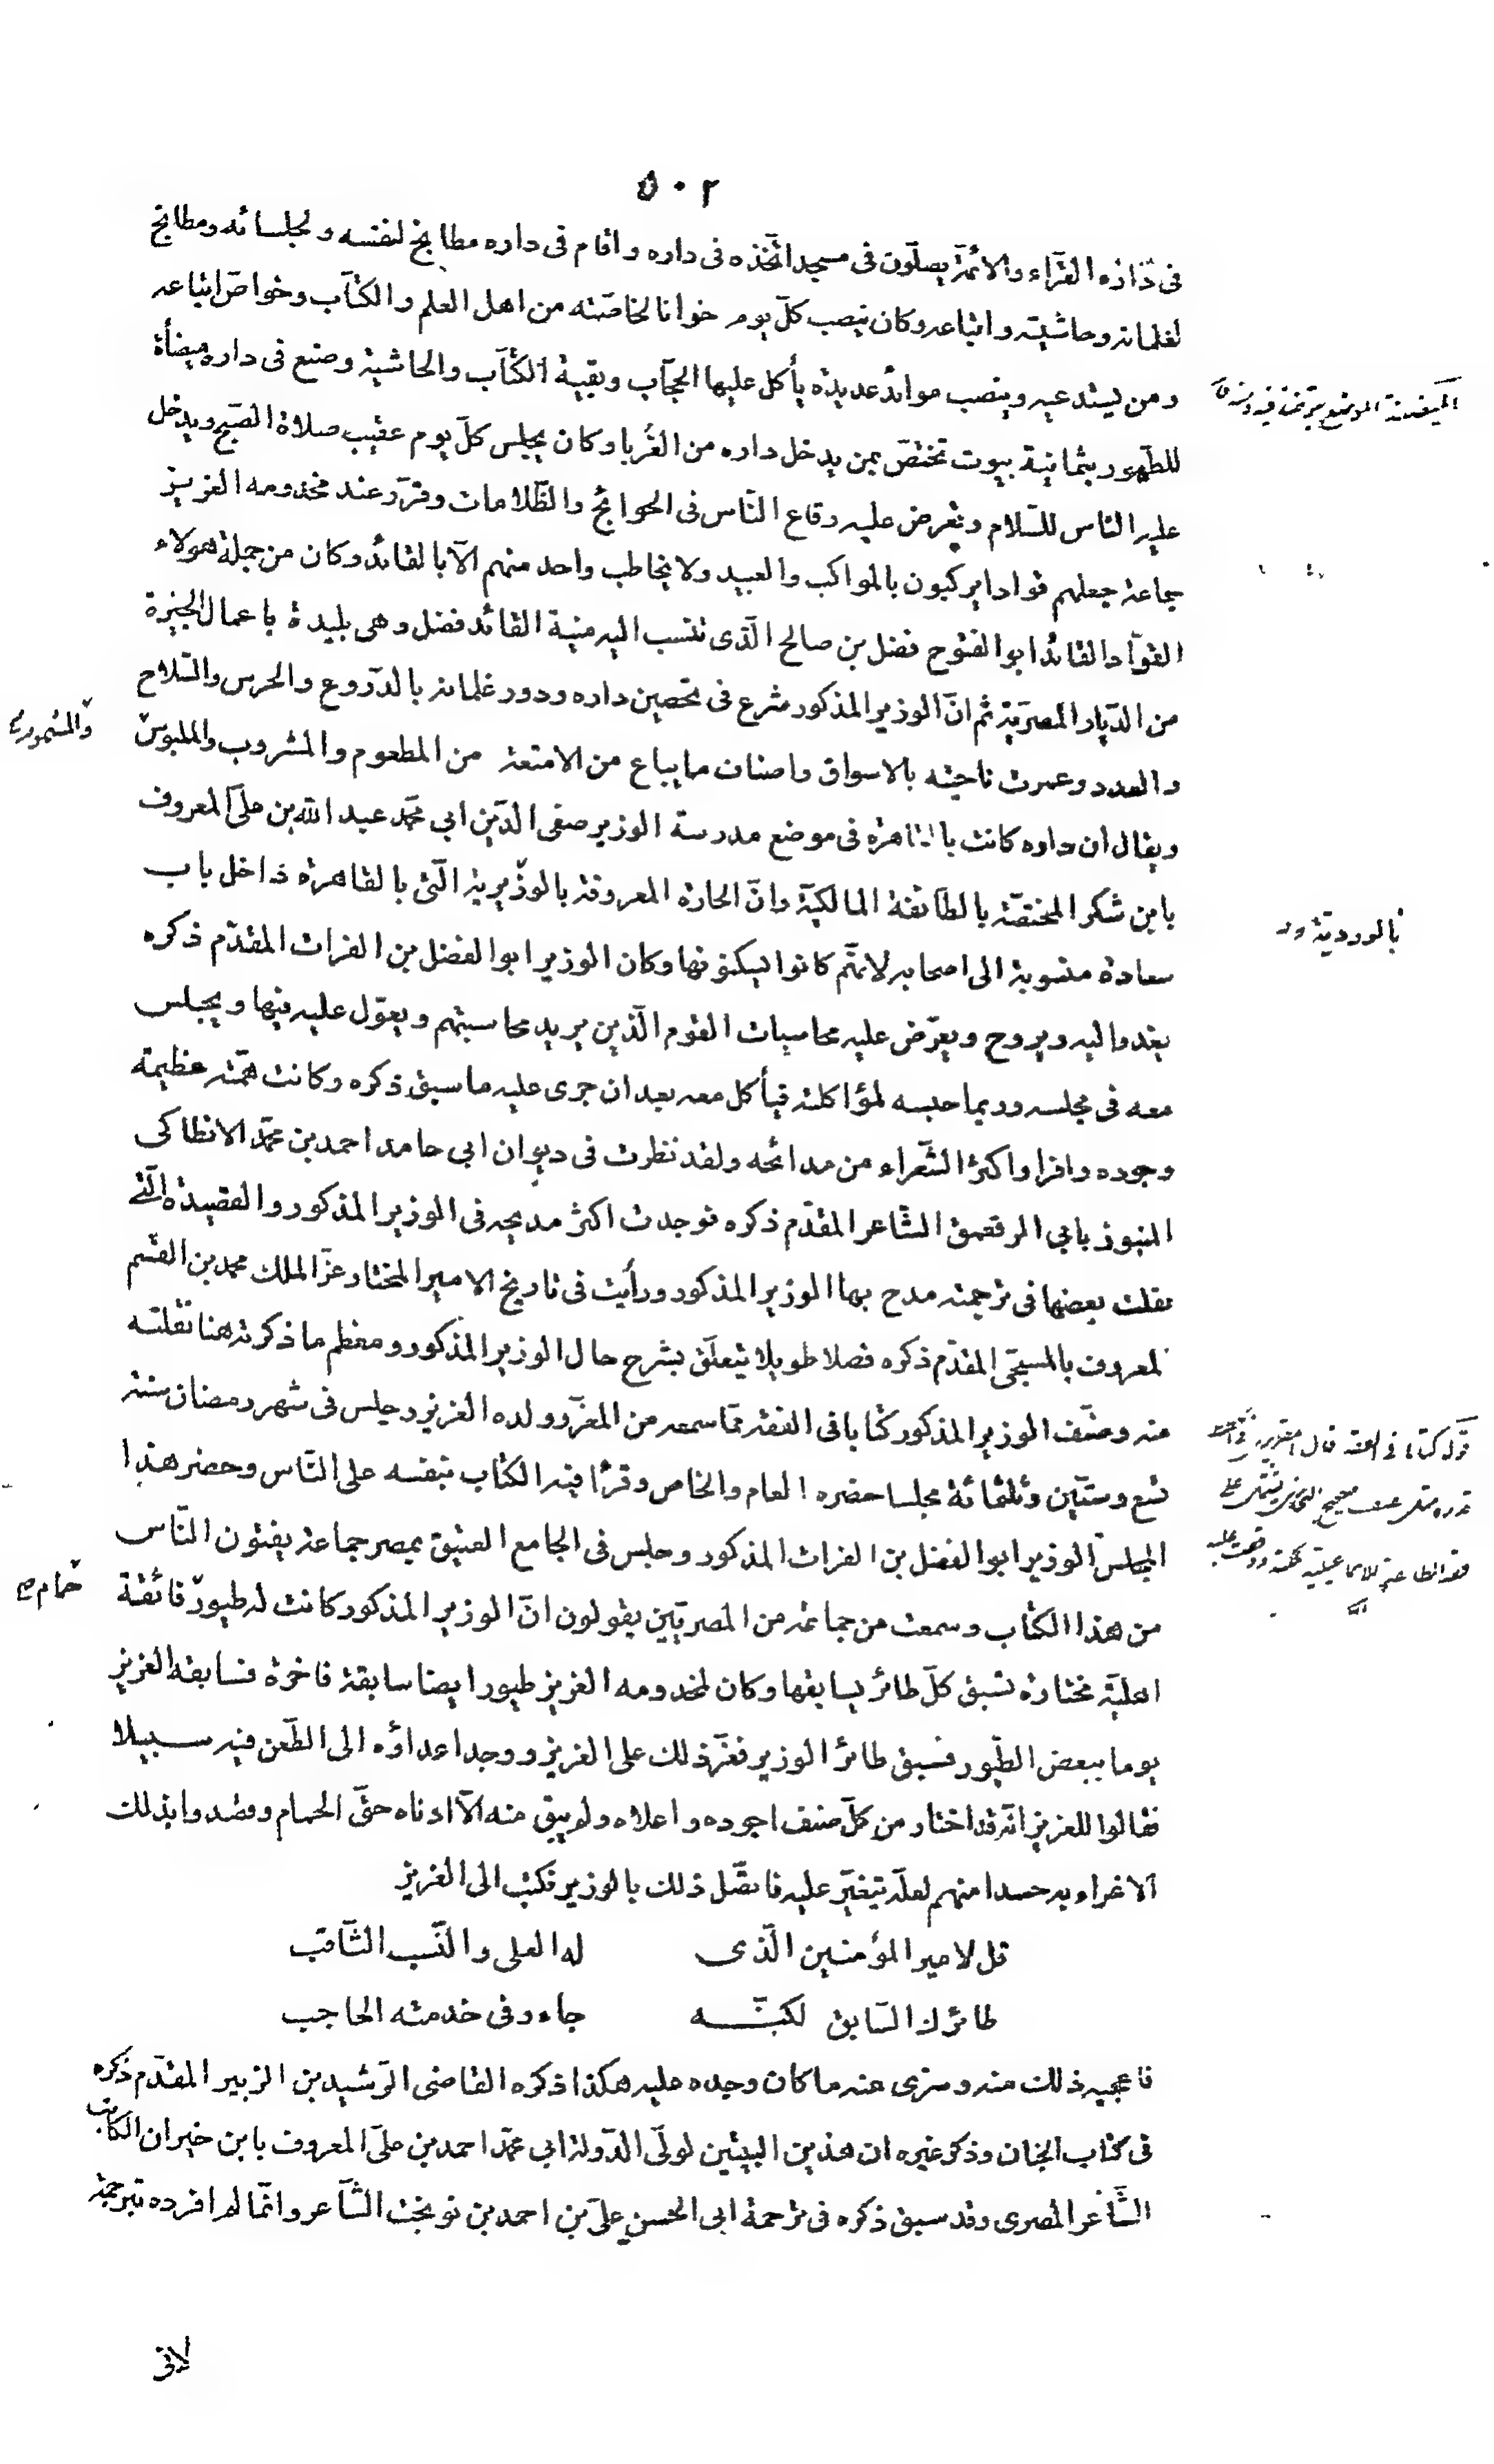 ٥٠٢
فى داره القرّاء والائمّة يصلّون فى مسجد اتّخذه فى داره واقام فى داره مطابخ لنفسه ولجلسائه ومطابخ
لغلمانه وحاشيته واتباعه وكان ينصب كلّ يوم خوانا لخاصّته من اهل العلم والكتّاب وخواصّ اتباعه
ومن يستدعيه وينصب موائد عديدة يأكل عليها الحجّاب وبقية الكتّاب والحاشية وصنع فى داره ميضأة
الميضئة الموضع يتوضأ فيه ومنه
للطّهور بثمانية بيوت تختصّ بمن يدخل داره من الغُربا وكان يجلس كلّ يوم عقيب صلاة الصّبح ويدخل
عليه النّاس للسّلام وتعرض عليه رقاع النّاس فى الحوائج والظّلامات وقرّر عند مخدومه العزيز
جماعة جعلهم قوادا يركبون بالمواكب والعبيد ولا يخاطب واحد منهم الّا بالقائد وكان من جملة هولاء
القوّاد القائد ابو الفتوح فضل بن صالح الّذى تنسب اليه منية القائد فضل وهى بليدة باعمال الجيزة
من الدّيار المصريّة ثم انّ الوزير المذكور شرع فى تحصين داره ودور غلمانه بالدّروع والحرس والسّلاح
والعدد وعمرت ناحيته بالاسواق واصناف ما يباع من الامتعة من المطعوم والمشروب والملبوس
والمشموم
ويقال ان داره كانت بالقاهرة فى موضع مدرسة الوزير صفى الدّين ابى محمّد عبد الله بن علىّ المعروف
بابن شكر المختصّة بالطائفة المالكيّة وانّ الحارة المعروفة بالوزيرية الّتى بالقاهرة داخل باب
بالوردية
سعادة منسوبة الى اصحابه لانهّم كانوا يسكنونها وكان الوزير ابو الفضل بن الفرات المقدّم ذكره
يغدو اليه ويروح ويعرّض عليه محاسبات القوم الّذين يريد محاسبتهم ويعوّل عليه فيها ويجلس
معه فى مجلسه وربما حبسه لمؤاكلته فيأكل معه بعد ان جرى عليه ما سبق ذكره وكانت همّته عظيمة
وجوده وافرا واكثر الشّعراء من مدائحه ولقد نظرت فى ديوان ابى حامد احمد بن محمّد الانطاكى
المنبوز بابى الرقعمق الشّاعر المقدّم ذكره فوجدت اكثر مديحه فى الوزير المذكور والقصيدة الّتى
نقلت بعضها فى ترجمته مدح بها الوزير المذكور ورأيت فى تاريخ الامير المختار عزّ الملك محمد بن القسم
المعروف بالمسبحّى المقدّم ذكره فصلا طويلا يتعلّق بشرح حال الوزير المذكور ومعظم ما ذكرته هنا نقلته
منه وصنّف الوزير المذكور كتابا فى الفقه ممّا سمعه من المعزّ وولده العزيز وجلس فى شهر رمضان سنة
تسع وستّين وثلثمائة مجلسا حضره العام والخاص وقرأ فيه الكتاب بنفسه على النّاس وحضر هذا
المجلس الوزير ابو الفضل بن الفرات المذكور وجلس فى الجامع العتيق بمصر جماعة يفتون النّاس
من هذا الكتاب وسمعت من جماعة من المصريّين يقولون انّ الوزير المذكور كانت له طيور فائقة
حمام صح
اهليّة مختارة تسبق كلّ طائر يسابقها وكان لمخدومه العزيز طيور ايضا سابقة فاخرة فسابقه العزيز
يوما ببعض الطّيور فسبق طائر الوزير فعزّ ذلك على العزيز ووجد اعداؤه الى الطّعن فيه سبيلا
فقالوا للعزيز انّه قد اختار من كلّ صنف اجوده واعلاه ولم يبق منه الّا ادناه حتّى الحمام وقصدوا بذلك
الاغراء به حسدا منهم لعلّه يتغيّر عليه فاتصّل ذلك بالوزير فكتب الى العزيز
قل لامير المؤمنين الّذى له العلى والنّسب الثّاقب
طائرك السّابق لكنّه جاء وفى خدمته الحاجب
فاعجبه ذلك منه وسرّى عنه ما كان وجده عليه هكذا ذكره القاضى الرّشيد بن الزبير المقدّم ذكره
فى كتاب الجنان وذكر غيره ان هذين البيتين لولّى الدّولة ابى محمّد احمد بن علىّ المعروف بابن خيران الكاتب
الشّاعر المصرى وقد سبق ذكره فى ترجمة ابى الحسن علىّ بن احمد بن نوبخت الشّاعر وانمّا لم افرده بترجمة
لانى